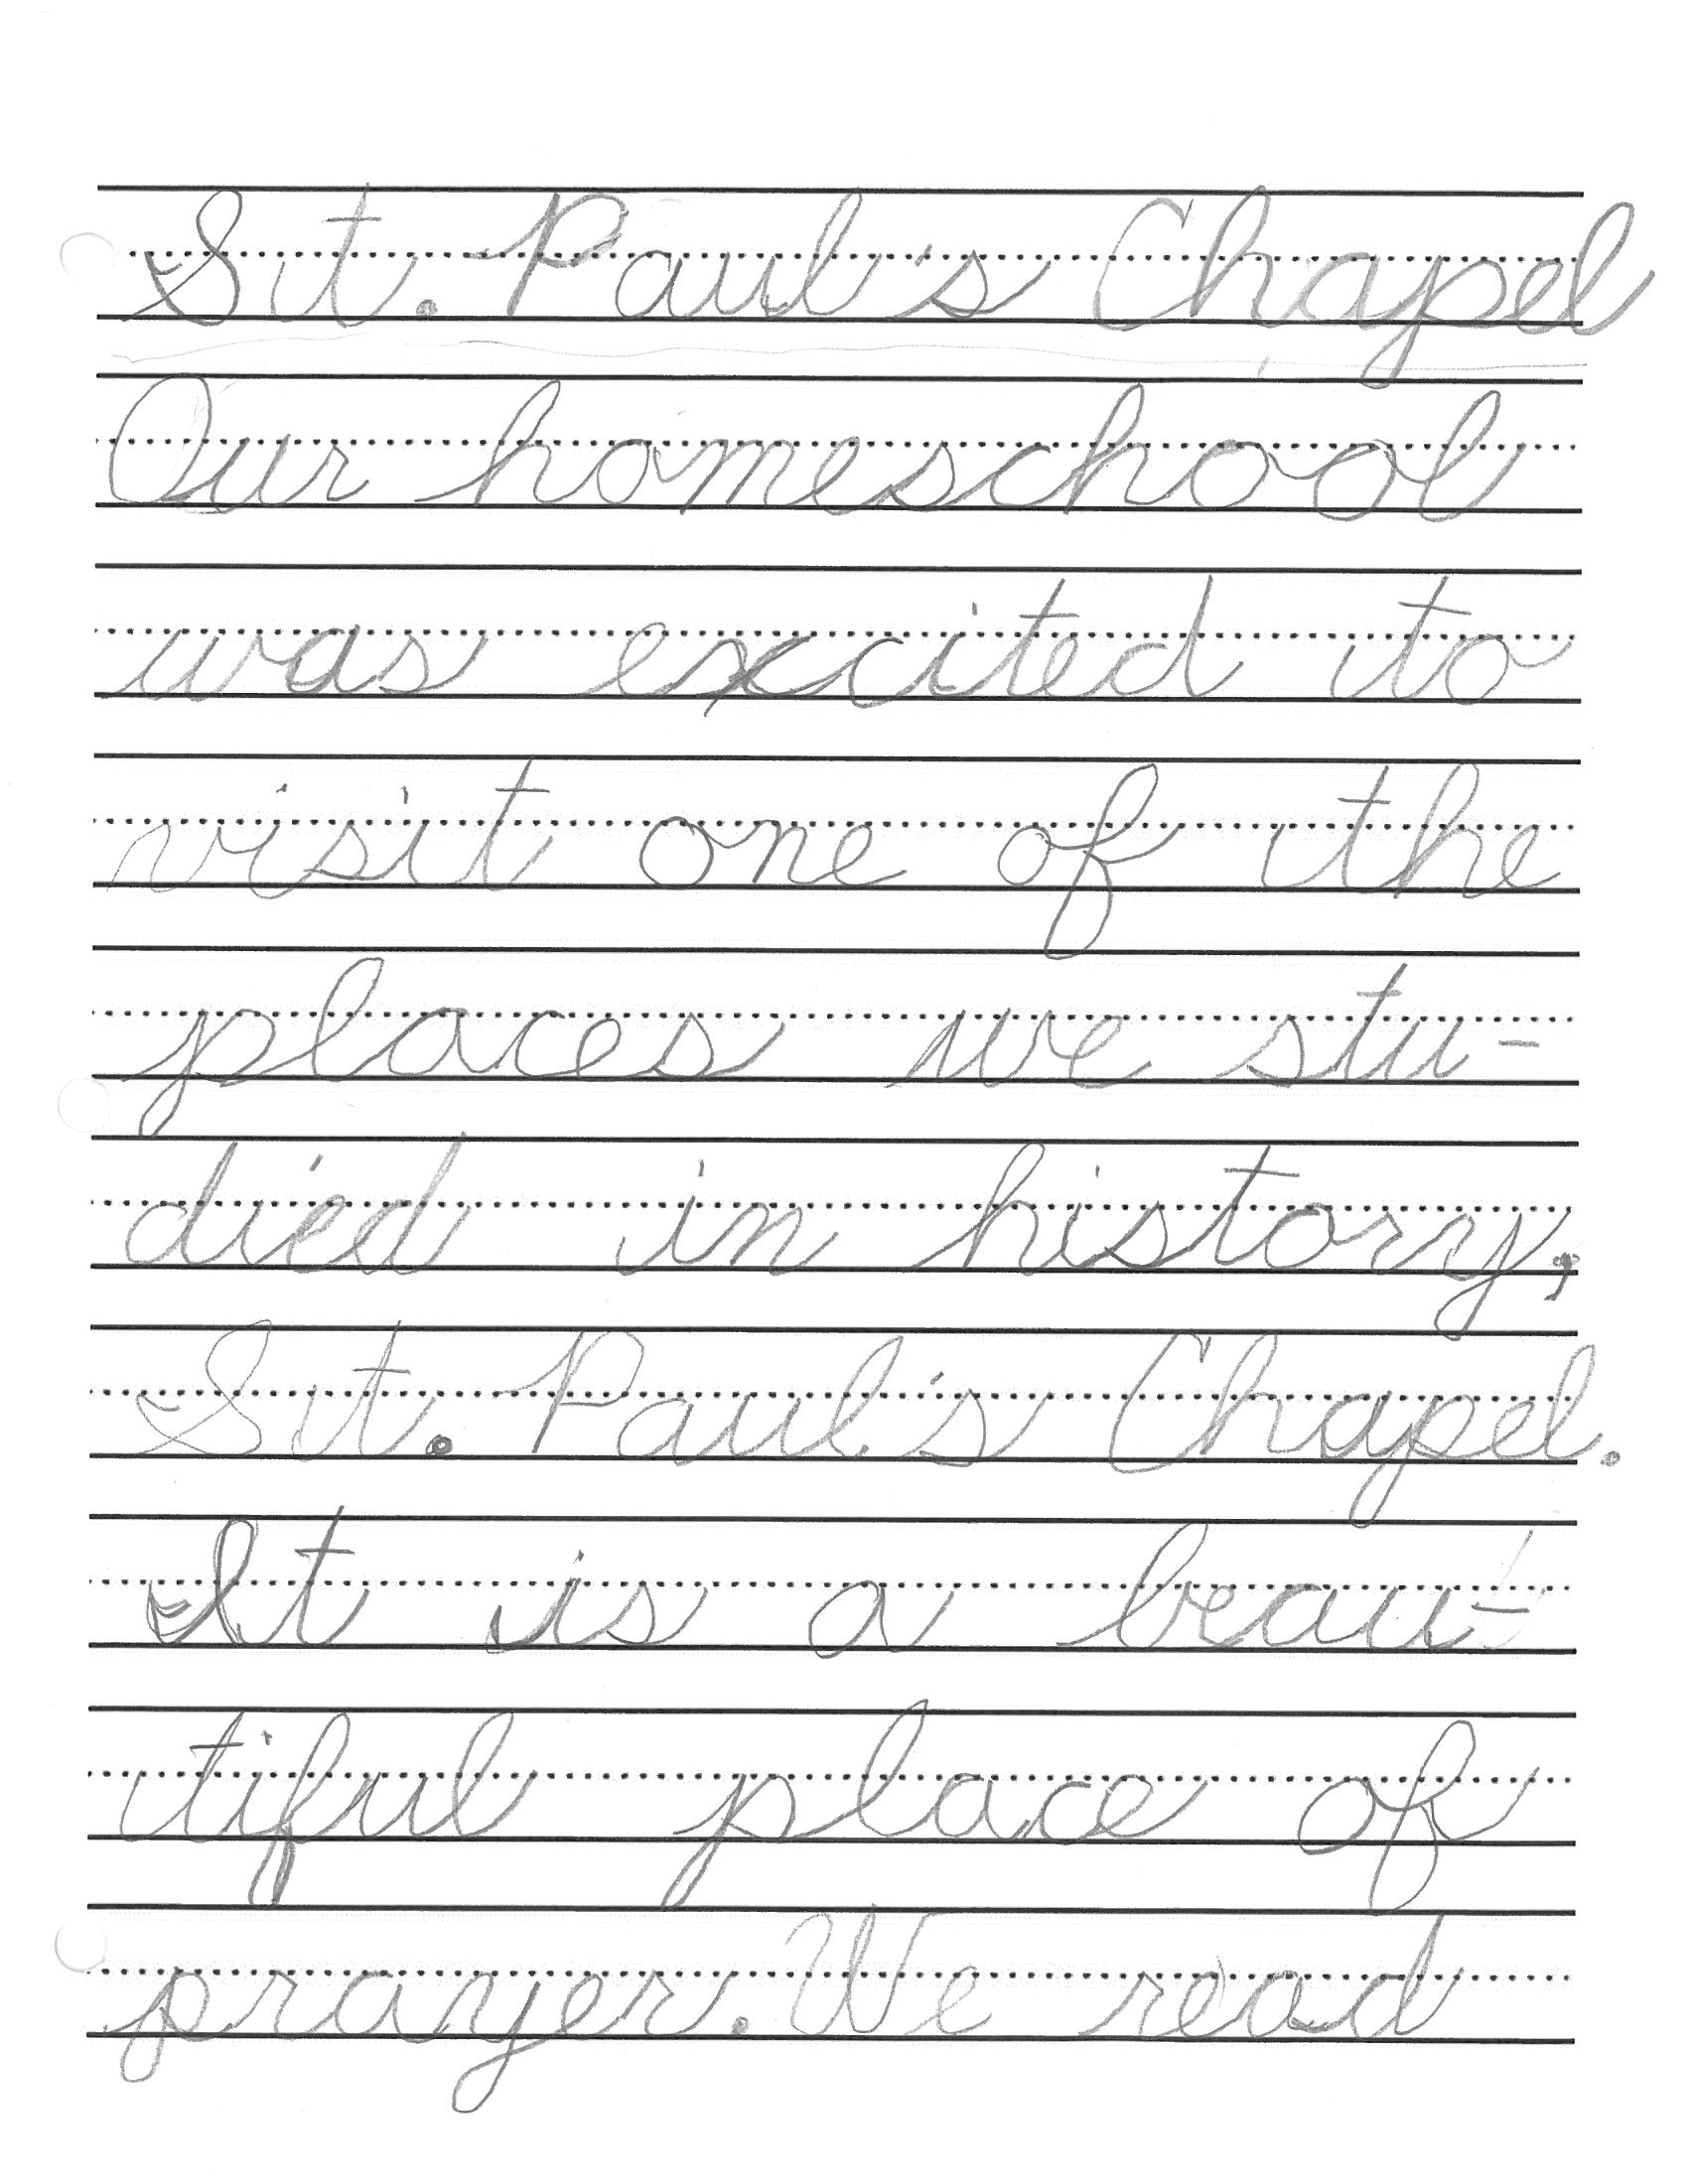 St. Paul's Chapel
Our homeschool
was excited to
visit one of the
places we stu-
died in history,
St. Paul's Chapel.
It is a beau-
tiful place of
prayer. We read